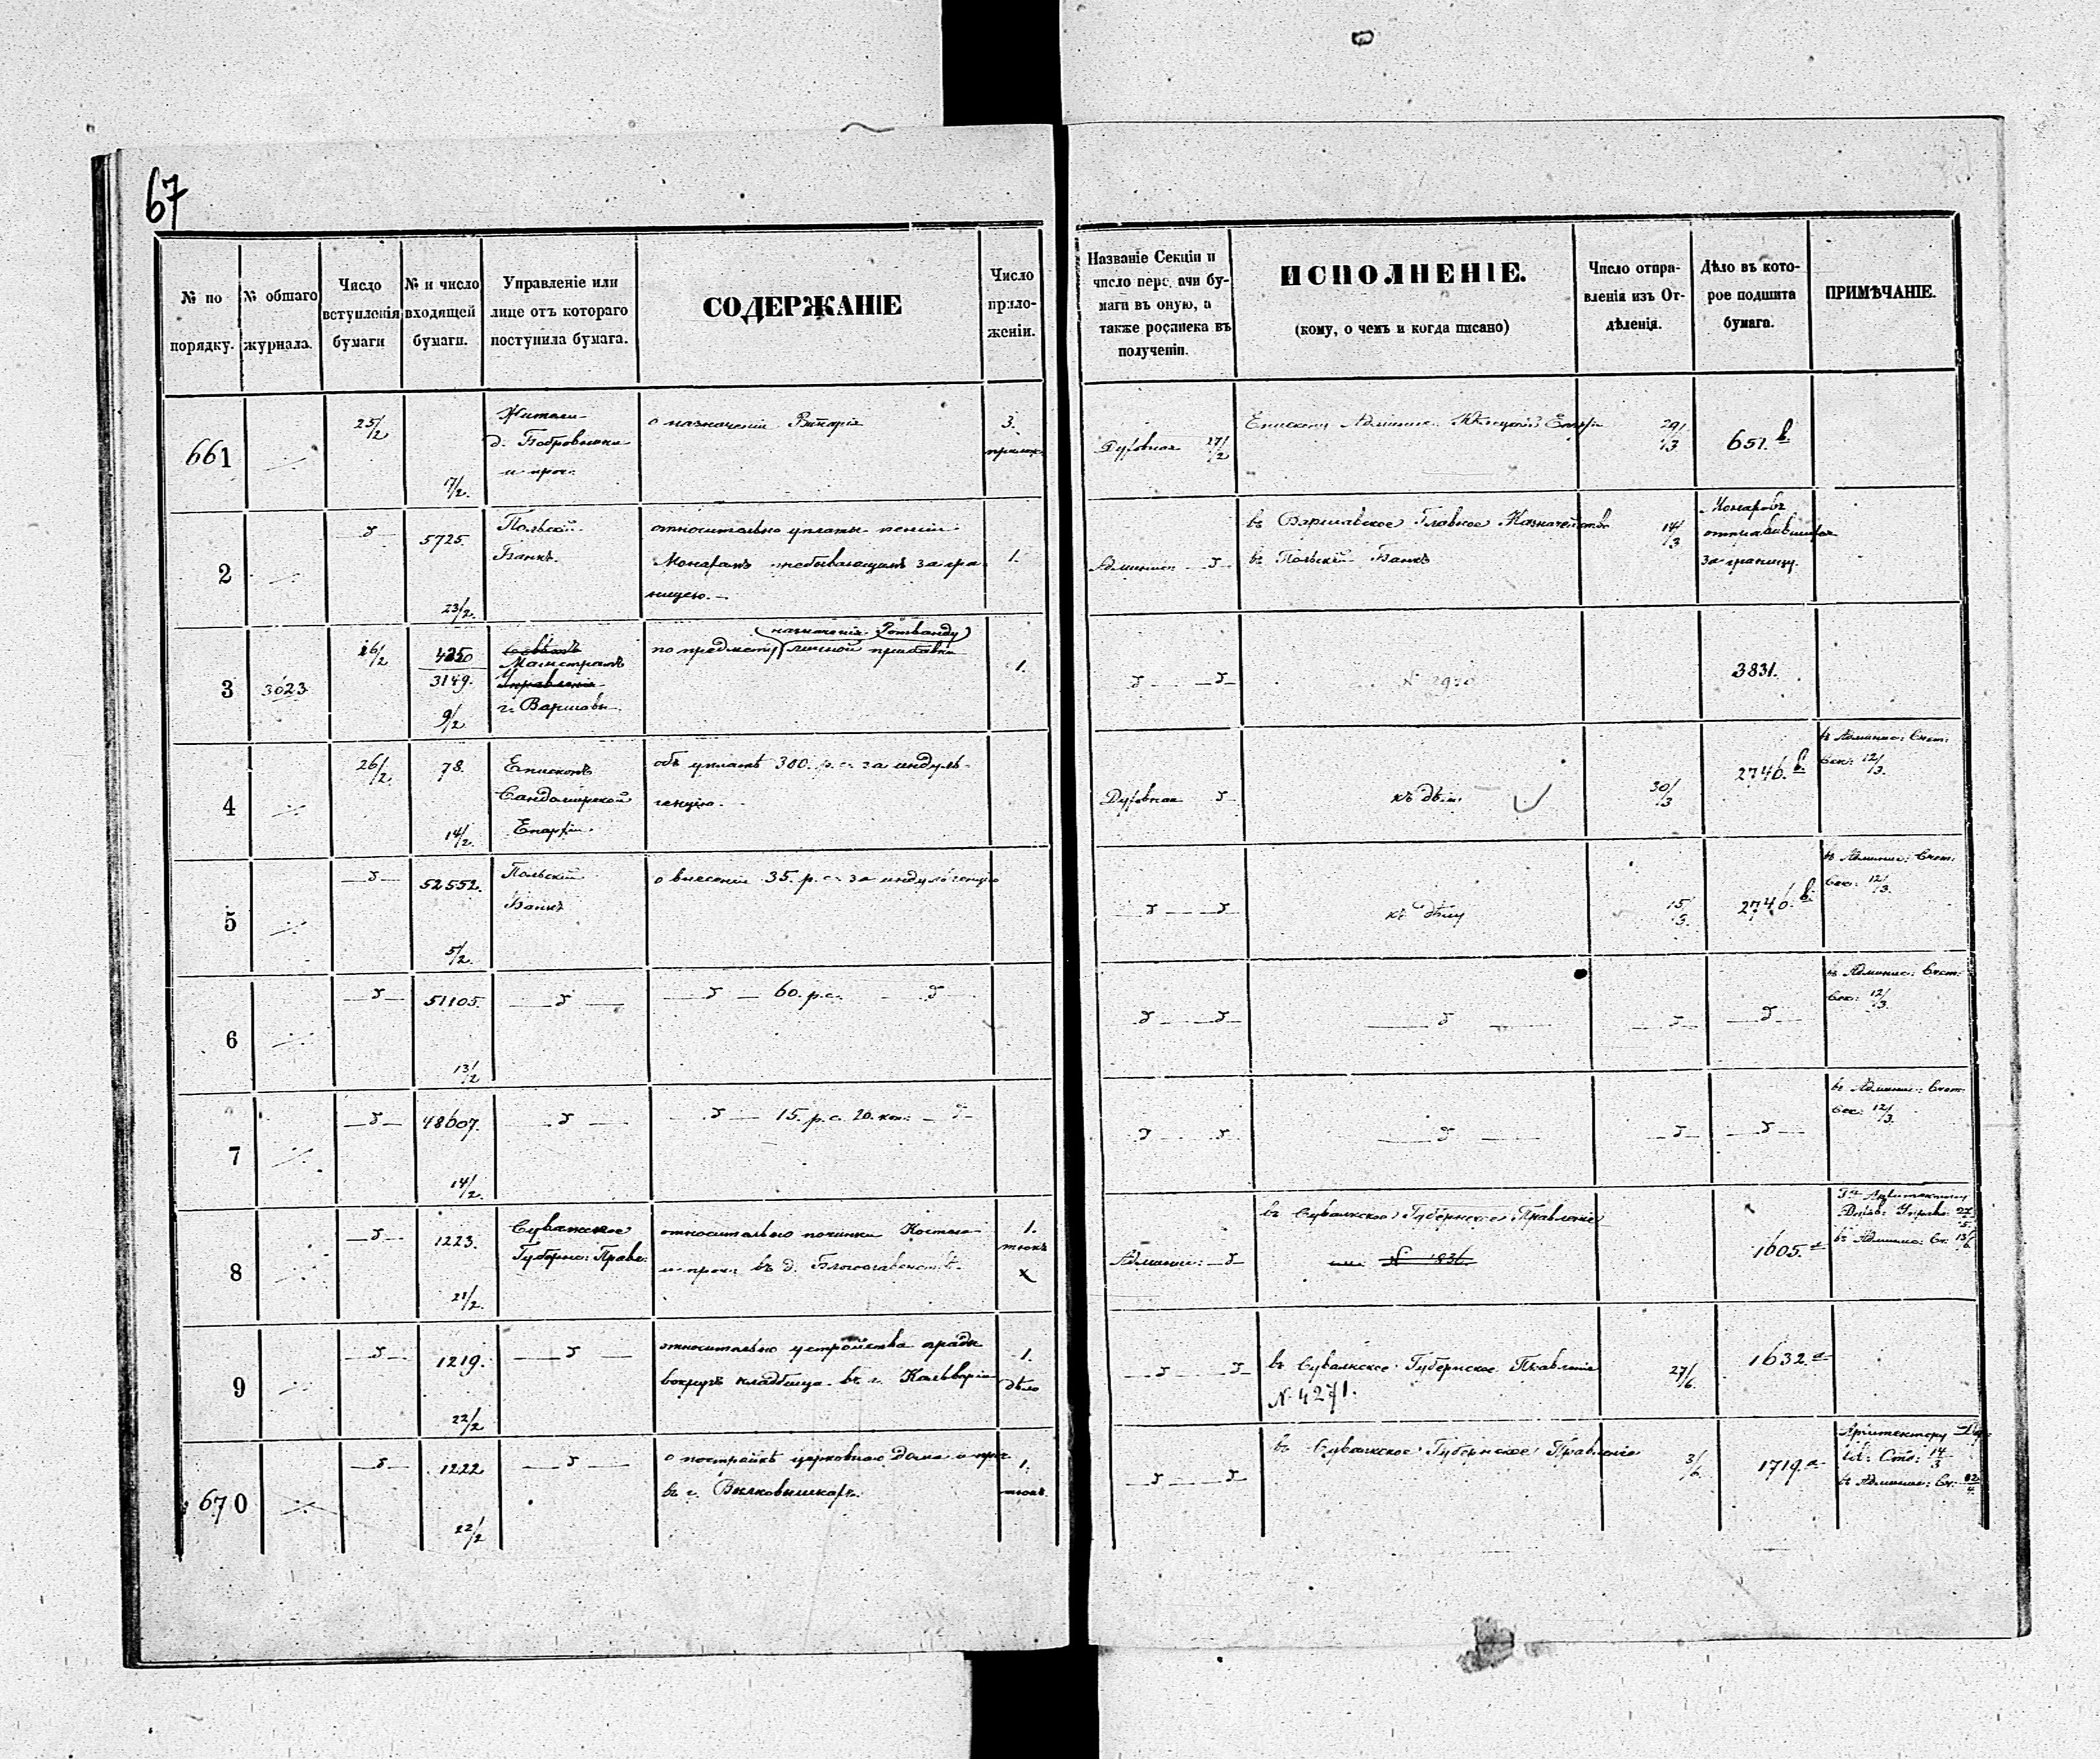 67
№ по порядку.
№ общаго журнала.
Число вступленія бумаги
№ и число входящей бумаги.
Управленіе или лице отъ котораго поступила бумага.
СОДЕРЖАНІЕ
Число прило-
женій.
Названіе Секціи и
число перед ачи бу-
маги въ оную, а
также росписка въ
полученіи.
ИСПОЛНЕНІЕ.
(кому, о чемъ и когда писано)
Число отпра-
вленія изъ От-
дѣленія.
Дѣло въ кото-
рое подшита
бумага.
ПРИМѢЧАНІЕ.
661
25/2
7/2.
Жители
д. Бобровники
и проч.
о назначеніи Викарія
3.
прилож.
Духовная 27/2
Епископу Админис. Кѣлецкой Епарх
29/3
651.b
2
5725.
23/2.
Польскій
Банкъ.
относительно уплаты пенсіи
Монахамъ пребывающимъ за гра
ницею.
1.
Админис.
въ Варшавское Главное Казначейство
въ Польскій Банкъ
14/3
Монаховъ
отправившихся
за границу.
3
3023
26/2
3149.
9/2
Магистратъ
г. Варшавы
назначенія Ротванду
по предмету личной прибавки
1.
3831.
4
26/2
78.
14/2.
Епископъ
Сандомирской
Епархіи.
объ уплатѣ 300. р. с. за индуль-
генцію.
Духовная
къ дѣлу
30/3
2746.b.
въ Админис: Счет:
Сек: 12/3.
5
52552.
5/2.
Польскій
Банкъ
о внесеніи 35. р. с. за индульгенцію
къ дѣлу
15/3.
2746.b.
въ Админис: Счет:
Сек: 12/3.
6
51105.
13/2
60. р. с.
въ Админис: Счет:
Сек: 12/3.
7
48607.
14/2.
15. р. с. 20. коп.
въ Админис: Счет:
Сек: 12/3.
8
1223.
21/2.
Сувалкское
Губерн: Правл:
относительно починки Костела
и проч. въ д.
1.
тюкъ
x
Админис:
въ Сувалкское Губернское Правленіе
1605.a
9
1219.
22/2
относительно устройства ограды
вокругъ кладбища въ г. Кальваріи
1.
дѣло
въ Сувалкское Губернское Правленіе
N. 4271.
27/6.
1632.a
670
1222
22/2
о постройкѣ церковнаго дома и проч
въ г. Вылковышкахъ.
1.
тюкъ.
въ Сувалкское Губернское Правленіе
3/6.
1719.a
Архитектору
14/3
въ Админис: Сч.